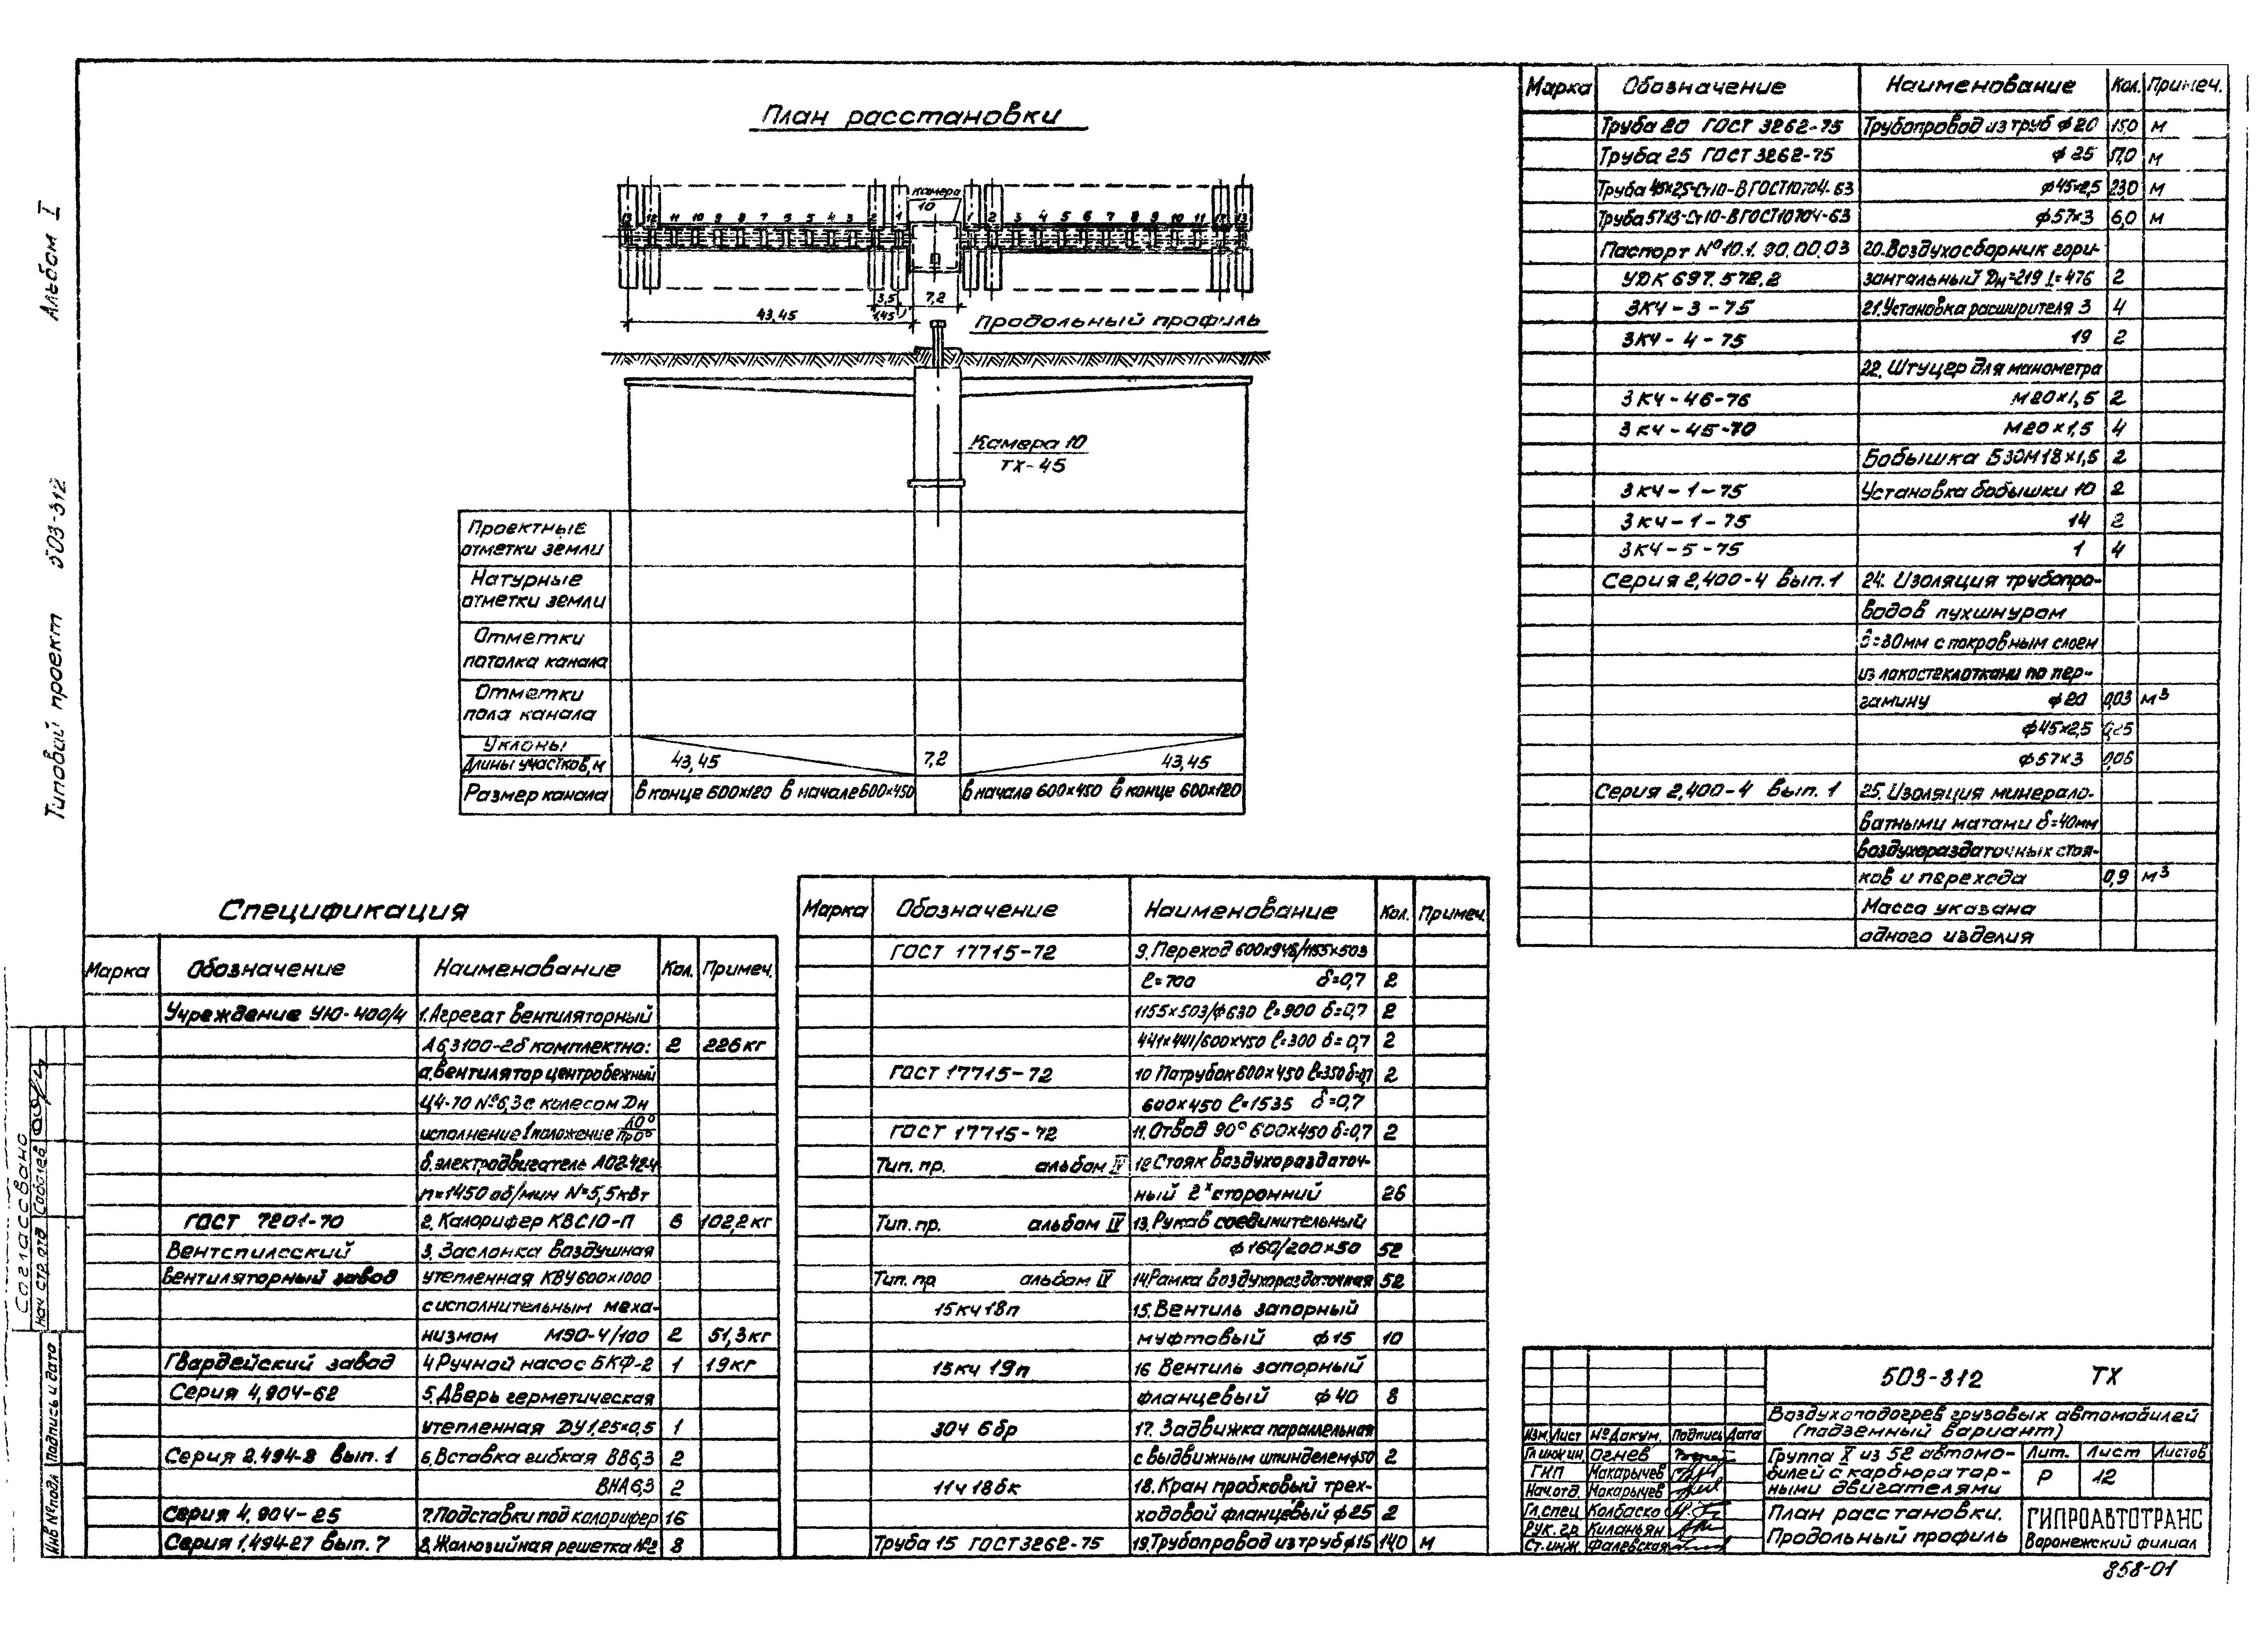 Альбом I
Типовой проект 503-312
План расстановки
камера
10
13 12 11 10 9 8 7 6 5 4 3 2 1
1 2 3 4 5 6 7 8 9 10 11 12 13
3,5
7,2
43,45
1,45
Продольный профиль
Камера 10
ТХ-45
Проектные
отметки земли
Натурные
отметки земли
Отметки
потолка канала
Отметки
пола канала
Уклоны
Длины участков, м
43,45
7,2
43,45
Размер канала
в конце 600х120 в начале 600х450
в начале 600х450 в конце 600х120
Спецификация
Марка Обозначение Наименование Кол. Примеч.
Учреждение УЮ-400/4 1. Агрегат вентиляторный
А6,3100-2б комплектно: 2 226 кг
а. вентилятор центробежный
Ц4-70 №6,3 с колесом Дн
исполнение 1 положение Л0° Пр0°
б. электродвигатель АО2-42-4
n=1450 об/мин N=5,5 квт
ГОСТ 7201-70 2. Калорифер КВС10-П 6 102,2 кг
Вентспилсский 3. Заслонка воздушная
вентиляторный завод утепленная КВУ 600х1000
с исполнительным меха-
низмом МЭО-4/100 2 51,3 кг
Гвардейский завод 4. Ручной насос БКФ-2 1 19 кг
Серия 4.904-62 5. Дверь герметическая
утепленная ДУ 1,25х0,5 1
Серия 2.494-8 вып. 1 6. Вставка гибкая ВВ6,3 2
ВНА6,3 2
Серия 4.904-25 7. Подставки под калорифер 16
Серия 1.494-27 вып. 7 8. Жалюзийная решетка №2 8
Марка Обозначение Наименование Кол. Примеч.
ГОСТ 17715-72 9. Переход 600х946/1155х503
ℓ=700 δ=0,7 2
1155х503/ф630 ℓ=900 δ=0,7 2
441х441/600х450 ℓ=300 δ=0,7 2
ГОСТ 17715-72 10 Патрубок 600х450 ℓ=350 δ=0,7 2
600х450 ℓ=1535 δ=0,7
ГОСТ 17715-72 11. Отвод 90° 600х450 δ=0,7 2
Тип. пр. альбом IV 12 Стояк воздухораздаточ-
ный 2х сторонний 26
Тип. пр. альбом IV 13. Рукав соединительный
ф160/200х50 52
Тип. пр альбом IV 14. Рамка воздухораздаточная 52
15кч 18п 15. Вентиль запорный
муфтовый ф15 10
15кч 19п 16 Вентиль запорный
фланцевый ф40 8
30ч 6бр 17. Задвижка параллельная
с выдвижным шпинделем ф50 2
11ч 18бк 18. Кран пробковый трех-
ходовой фланцевый ф25 2
Труба 15 ГОСТ 3262-75 19. Трубопровод из труб ф15 140 м
Марка Обозначение Наименование Кол. Примеч.
Труба 20 ГОСТ 3262-75 Трубопровод из труб ф20 15,0 м
Труба 25 ГОСТ 3262-75 ф25 17,0 м
Труба 45х2,5-Ст10-В ГОСТ 10704-63 ф45х2,5 23,0 м
Труба 57х3-Ст10-В ГОСТ 10704-63 ф57х3 6,0 м
Паспорт №10.1.90.00.03 20. Воздухосборник гори-
УДК 697.572.2 зонтальный Дн=219 L=476 2
ЗКЧ-3-75 21. Установка расширителя 3 4
ЗКЧ-4-75 19 2
22. Штуцер для манометра
ЗКЧ-46-76 М20х1,5 2
ЗКЧ-45-70 М20х1,5 4
Бобышка БЗОМ18х1,5 2
ЗКЧ-1-75 Установка бобышки 10 2
ЗКЧ-1-75 14 2
ЗКЧ-5-75 1 4
Серия 2.400-4 вып. 1 24. Изоляция трубопро-
водов пухшнуром
δ=30мм с покровным слоем
из лакостеклоткани по пер-
гамину ф20 0,03 м³
ф45х2,5
ф57х3 0,05
Серия 2.400-4 вып. 1 25. Изоляция минерало-
ватными матами δ=40мм
воздухораздаточных стоя-
ков и перехода 0,9 м³
Масса указана
одного изделия
503-312 ТХ
Воздухоподогрев грузовых автомобилей
(надземный вариант)
Изм. Лист № Докум. Подпись Дата
Гл инж ин. Огнев
ГИП Макарычев
Нач. отд. Макарычев
Гл. спец Колбаско
Рук. гр. Киланьян
Ст. инж. Фалевская
Группа X из 52 автомо-
билей с карбюратор-
ными двигателями
Лит. Лист Листов
Р 12
План расстановки.
Продольный профиль
ГИПРОАВТОТРАНС
Воронежский филиал
858-01
Согласовано
Нач. стр. отд Соболев
Инв № подл Подпись и дата